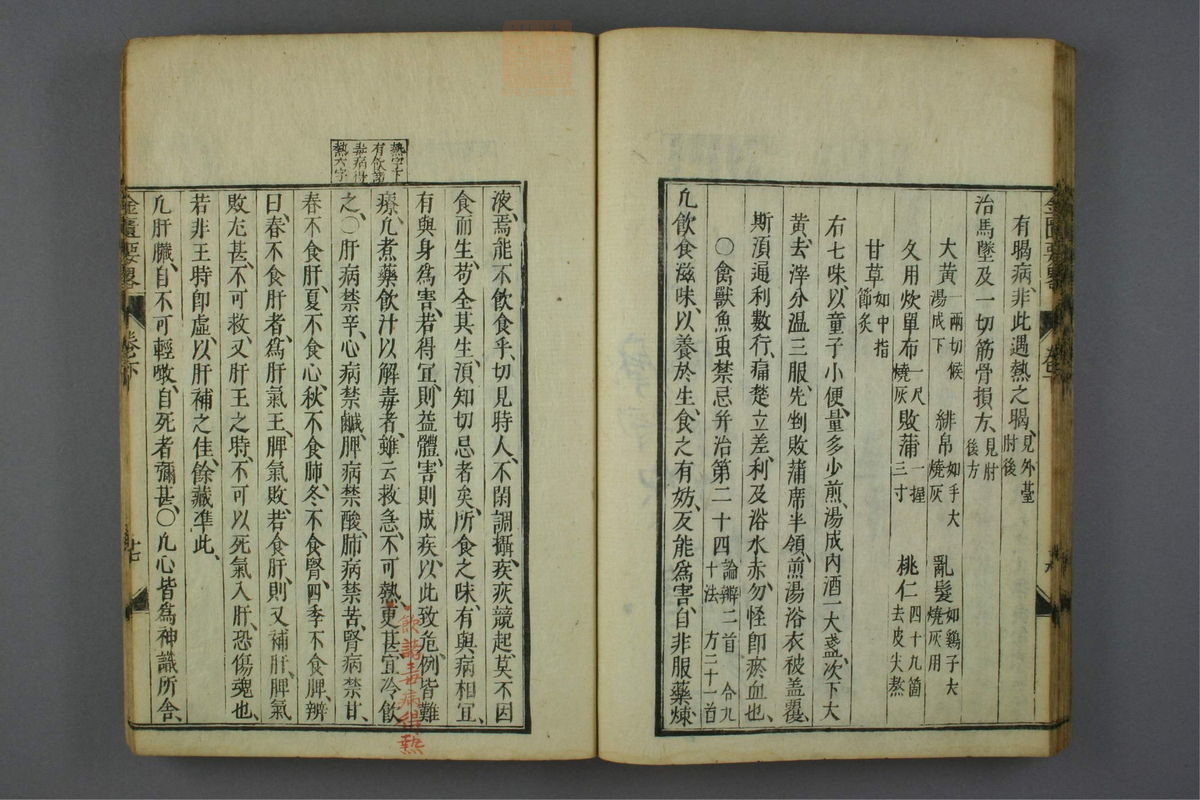 有暍病、非此遇熱之暍、見外臺肘後
治馬墜及一切筋骨損方、見肘後方
大黃一兩切候湯成下 緋帛如手大燒灰 亂髮如鷄子大燒灰用
久用炊單布一尺燒灰 敗蒲一握三寸 桃仁四十九箇去皮尖熬
甘草如中指節炙
右七味、以童子小便、量多少煎、湯成內酒一大盞、次下大
黃、去滓分溫三服、先剉敗蒲席半領、煎湯浴衣被盖覆、
斯湏通利數行、痛楚立差、利及浴水赤、勿怪即瘀血也、
○禽獸魚虫禁忌幷治第二十四論辯二首 合九十法 方二十一首
凢飲食滋味、以養於生、食之有妨、反能爲害、自非服藥煉
液、焉能不飲食乎、切見時人、不閑調攝、疾疢競起、莫不因
食而生、苟全其生、湏知切忌者矣、所食之味、有與病相宜、
有與身爲害、若得宜、則益體、害則成疾、以此致危、例皆難
療、凢煮藥飲汁以解毒者、雖云救急、不可熱、更甚宜冷飲
之、○肝病禁辛、心病禁鹹、脾病禁酸、肺病禁苦、腎病禁甘、
春不食肝、夏不食心、秋不食肺、冬不食腎、四季不食脾、辨
曰、春不食肝者、爲肝氣王、脾氣敗、若食肝、則又補肝、脾氣
敗尤甚、不可救、又肝王之時、不可以死氣入肝、恐傷魂也、
若非王時卽虛、以肝補之佳、餘藏準此、
凢肝臟、自不可輕噉、自死者彌甚、○凢心皆爲神識所舍、
熱字下
有飲諸
毒病得
熱六字
飲諸毒病得熱
金匱要畧
卷下
十七
金匱要畧